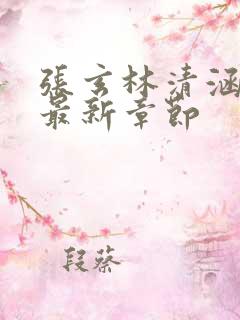 張玄林清涵
最新章節
段蔡